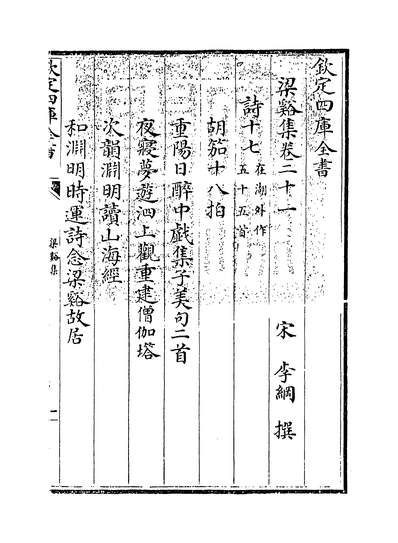 欽定四庫全書
梁谿集卷二十一
宋 李綱 撰
詩十七 在湖外作 五十五首
胡笳十八拍
重陽日醉中戲集子美句二首
夜寢夢遊泗上觀重建僧伽塔
次韻淵明讀山海經
和淵明時運詩念梁谿故居
欽定四庫全書
梁谿集
一